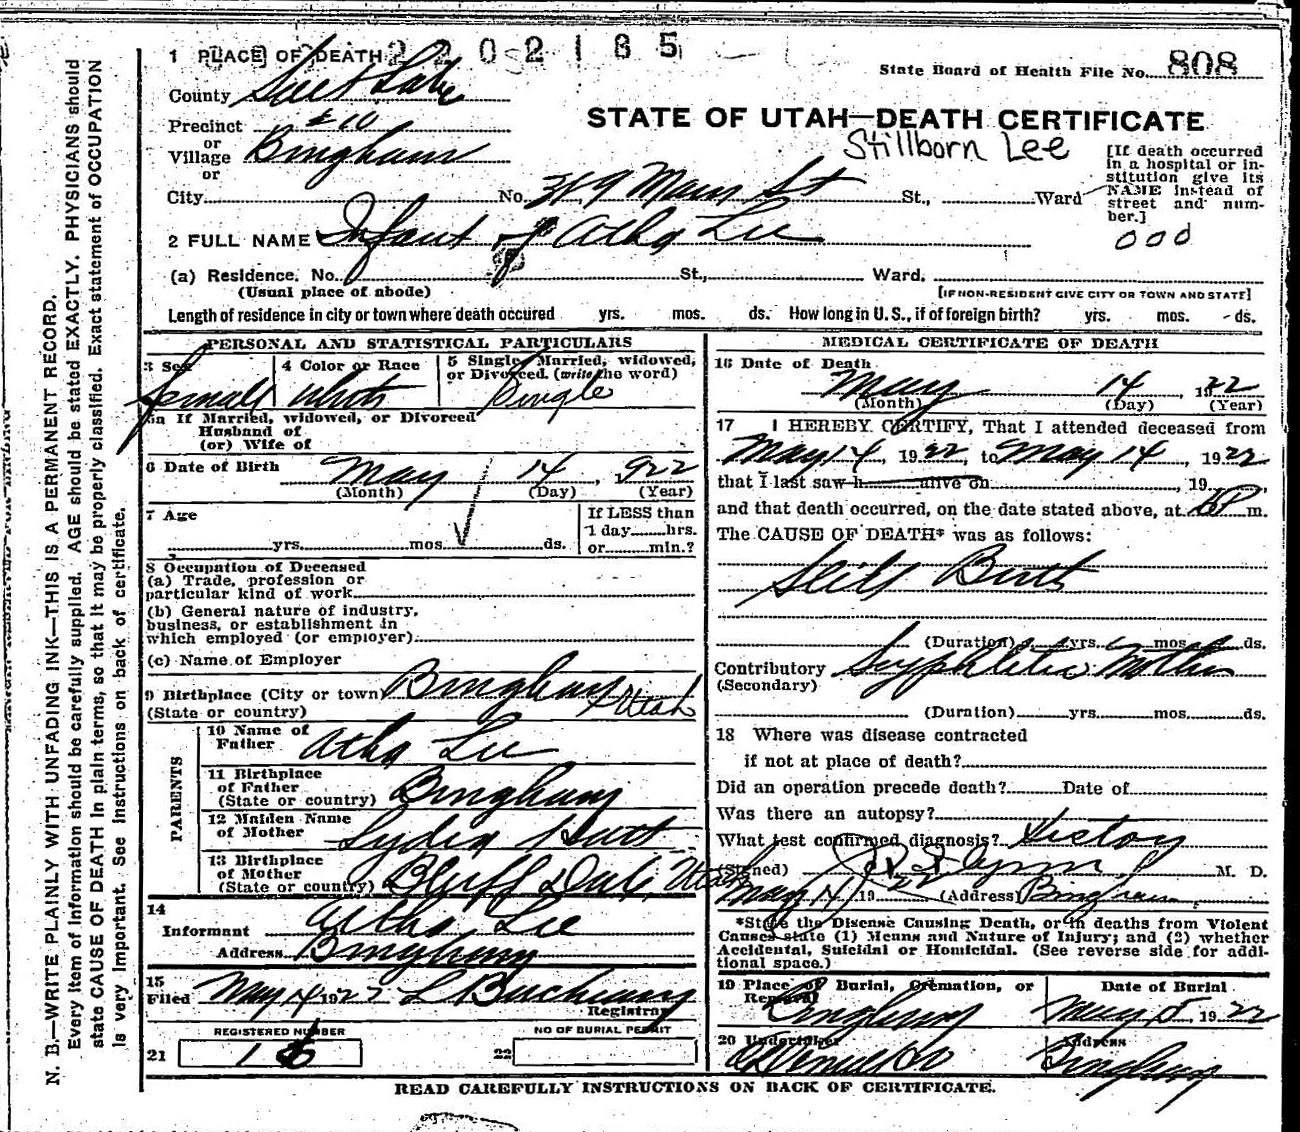 1 PLACE OF DEATH 2202185
State Board of Health File No. 808
County Salt Lake
STATE OF UTAH—DEATH CERTIFICATE
Precinct #10
or
Village Bingham
or
Stillborn Lee
[If death occurred in a hospital or institution give its NAME instead of street and number.]
City No. 319 Main St St., Ward
000
2 FULL NAME Infant of Atha Lee
(a) Residence. No. St., Ward.
(Usual place of abode)
[IF NON-RESIDENT GIVE CITY OR TOWN AND STATE]
Length of residence in city or town where death occured yrs. mos. ds. How long in U.S., if of foreign birth? yrs. mos. ds.
PERSONAL AND STATISTICAL PARTICULARS
3 Sex female
4 Color or Race White
5 Single, Married, widowed, or Divorced. (write the word) Single
5a If Married, widowed, or Divorced
Husband of
(or) Wife of
6 Date of Birth May 14, 922
(Month) (Day) (Year)
7 Age
yrs. mos. ds.
If LESS than
1 day hrs.
or min.?
8 Occupation of Deceased
(a) Trade, profession or
particular kind of work
(b) General nature of industry,
business, or establishment in
which employed (or employer)
(c) Name of Employer
9 Birthplace (City or town) Bingham
(State or country) Utah
PARENTS
10 Name of Father Atha Lee
11 Birthplace of Father
(State or country) Bingham
12 Maiden Name of Mother Lydia
13 Birthplace of Mother
(State or country) Bluff Dale, Utah
14
Informant Artha Lee
Address Bingham
15
Filed May 14 1922 L Buchanan
Registrar
REGISTERED NUMBER
21 16
NO OF BURIAL PERMIT
22
MEDICAL CERTIFICATE OF DEATH
16 Date of Death
May 14, 1922
(Month) (Day) (Year)
17 I HEREBY CERTIFY, That I attended deceased from
May 14, 1922, to May 14, 1922
that I last saw h alive on , 19 ,
and that death occurred, on the date stated above, at 6P m.
The CAUSE OF DEATH* was as follows:
Still Birth
(Duration) yrs. mos. ds.
Contributory Syphiletic Mother
(Secondary)
(Duration) yrs. mos. ds.
18 Where was disease contracted
if not at place of death?
Did an operation precede death? Date of
Was there an autopsy?
What test confirmed diagnosis? History
(Signed) M. D.
May 14, 1922 (Address) Bingham
*State the Disease Causing Death, or in deaths from Violent
Causes state (1) Means and Nature of Injury; and (2) whether
Accidental, Suicidal or Homicidal. (See reverse side for additional space.)
19 Place of Burial, Cremation, or Removal Bingham
Date of Burial
May 15, 1922
20 Undertaker
Address
Bingham
READ CAREFULLY INSTRUCTIONS ON BACK OF CERTIFICATE.
N. B.—WRITE PLAINLY WITH UNFADING INK—THIS IS A PERMANENT RECORD.
Every item of information should be carefully supplied. AGE should be stated EXACTLY. PHYSICIANS should
state CAUSE OF DEATH in plain terms, so that it may be properly classified. Exact statement of OCCUPATION
is very important. See instructions on back of certificate.